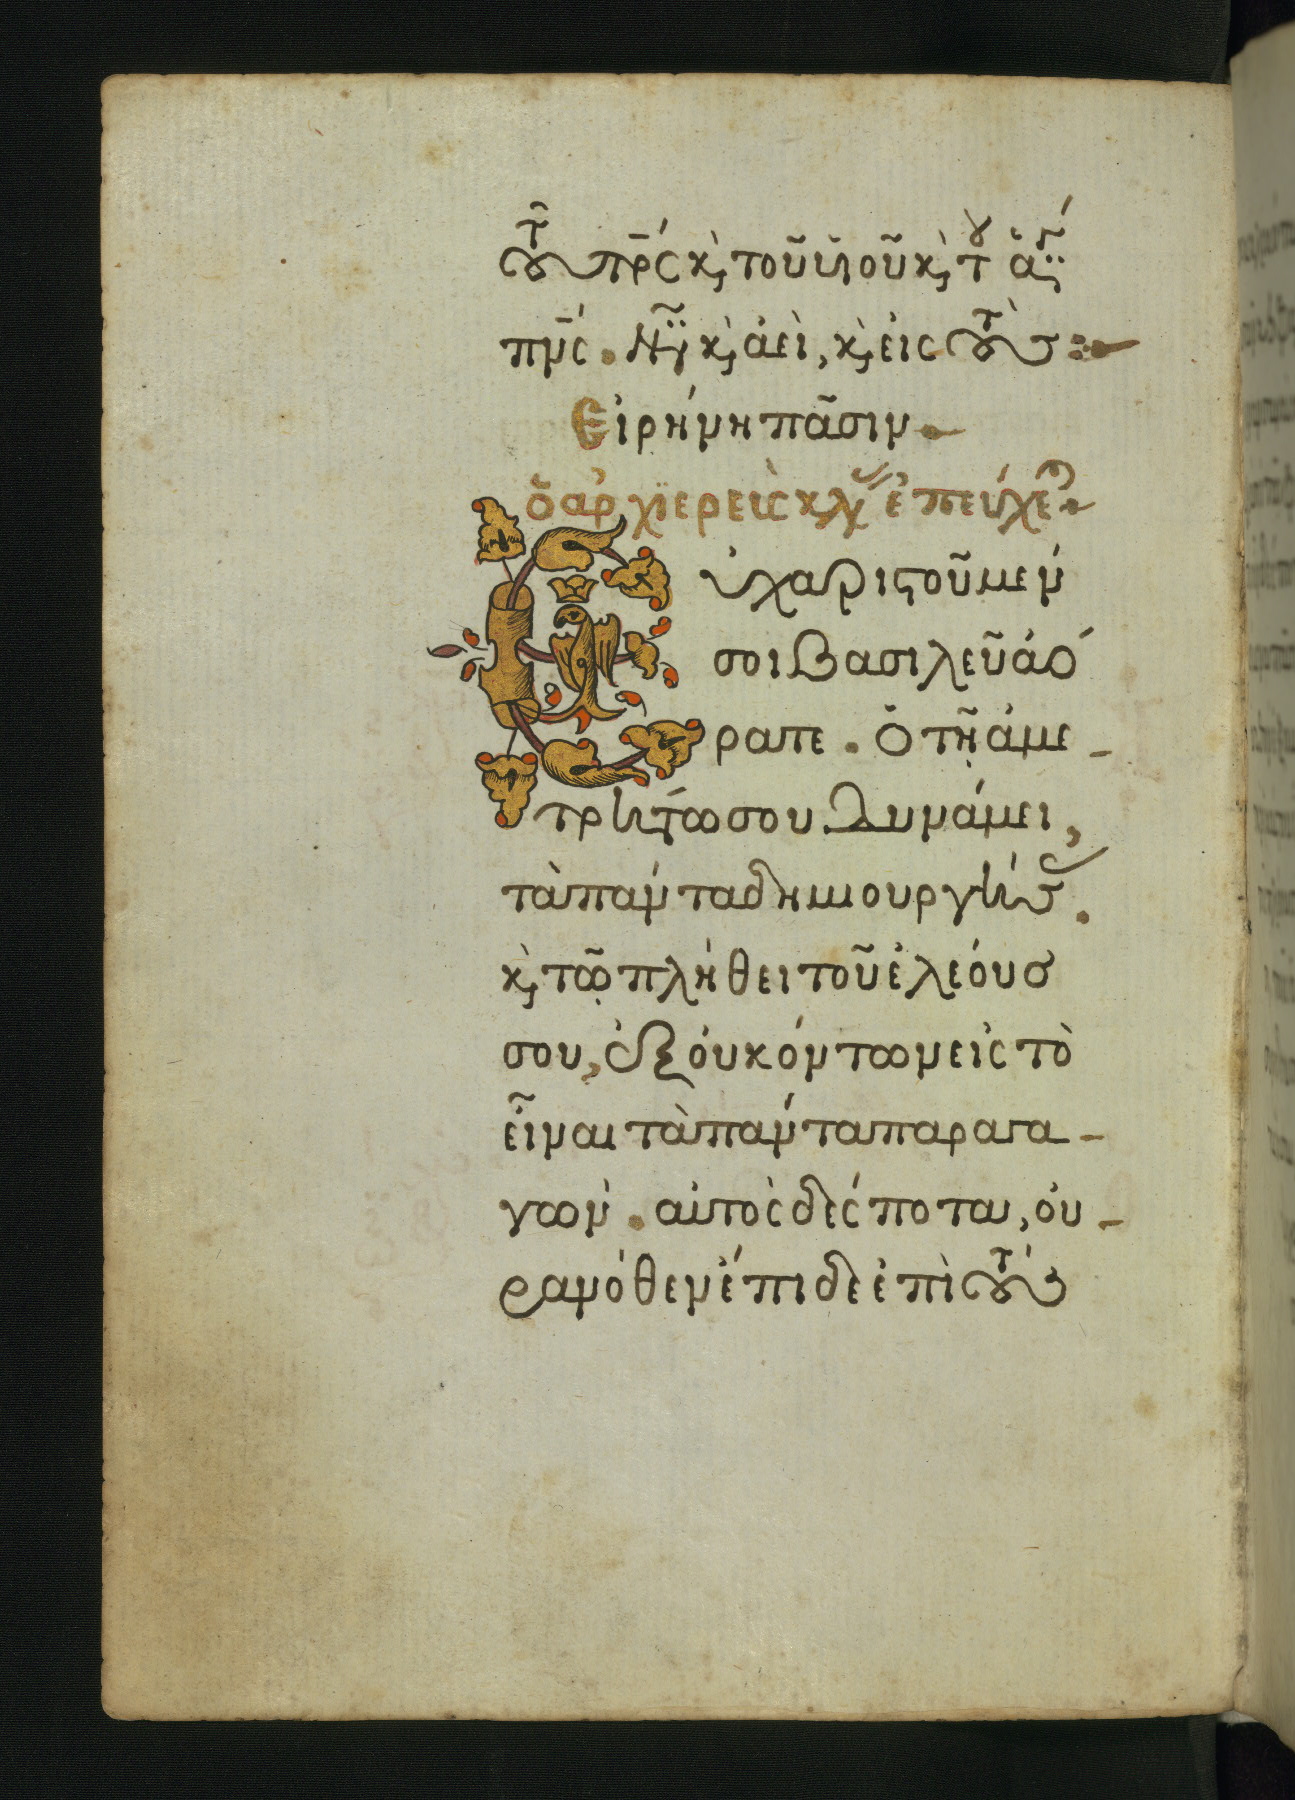 τοῦ πρ̅ς κ̀ τοῦ υἱοῦ κ̀ τοῦ ἁγίου
πν̅ς. Νῦν κ̀ ἀεὶ, κ̀ εἰς τοὺς
Εἰρήνη πᾶσιν
ὁ ἀρχϊερεὺς
Εὐχαριστοῦμέν
σοι βασιλεῦ ἀό
ρατε. ὁ τῇ ἀμε
τρήτω σου δυνάμει,
τὰ πάντα δημιουργήσας.
κ̀ τῶ πλήθει τοῦ ἐλέους
σου, ἐξ ὀυκ όντων εἰς τὸ
εἶναι τὰ πάντα παραγα
γων. αὐτὸς δέσποτα, οὐ
ρανόθεν ἔπιδε ἐπὶ τοὺς